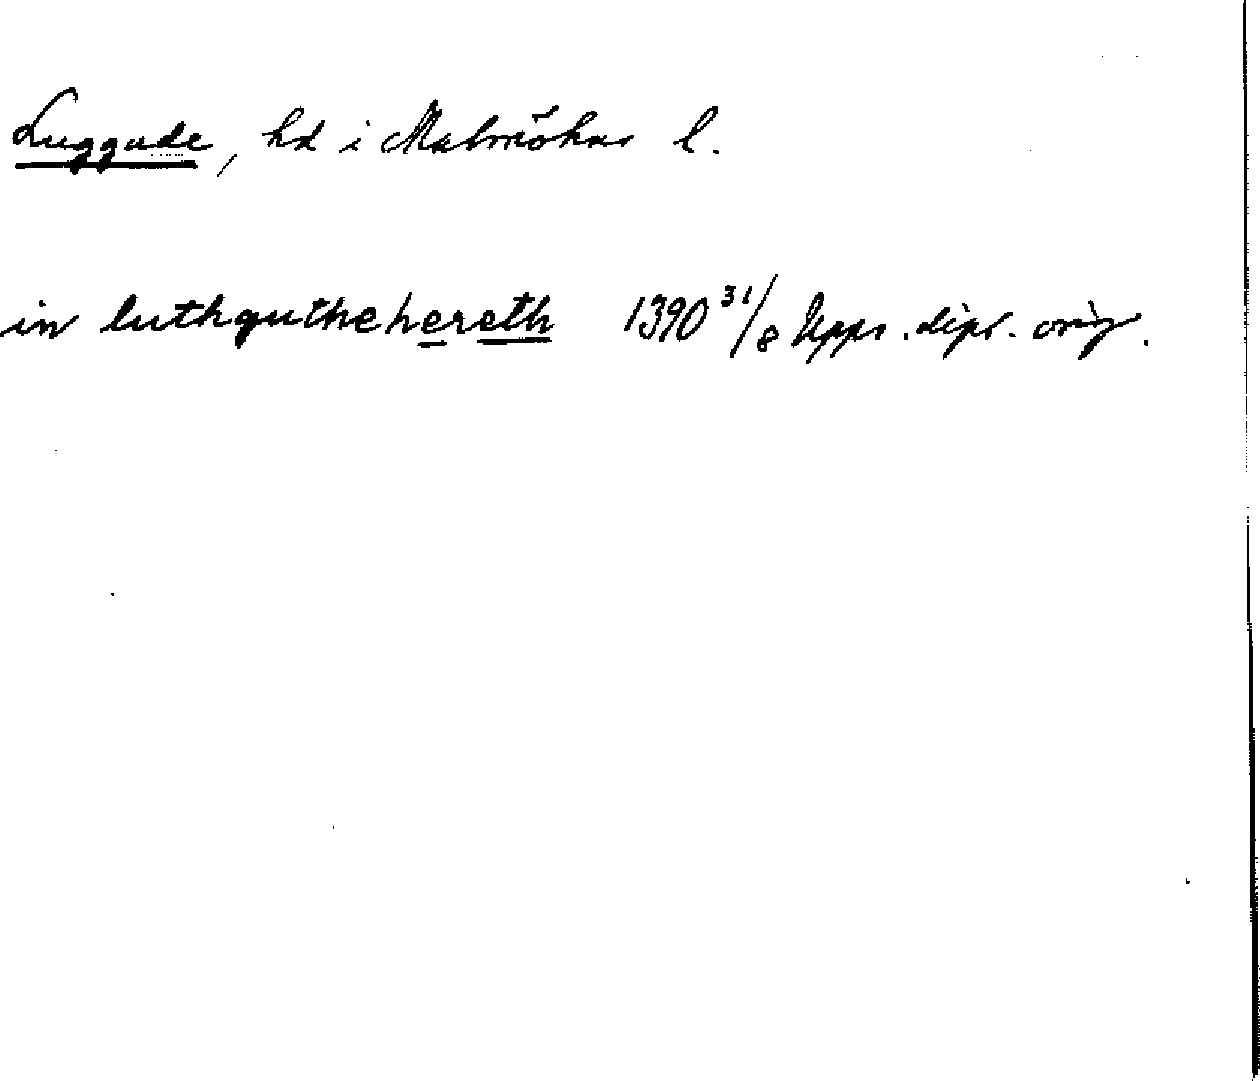 Luggude, hd i Malmöhus l.
in luthguthehereth 1390 31/8 Upps. dipl. orig.